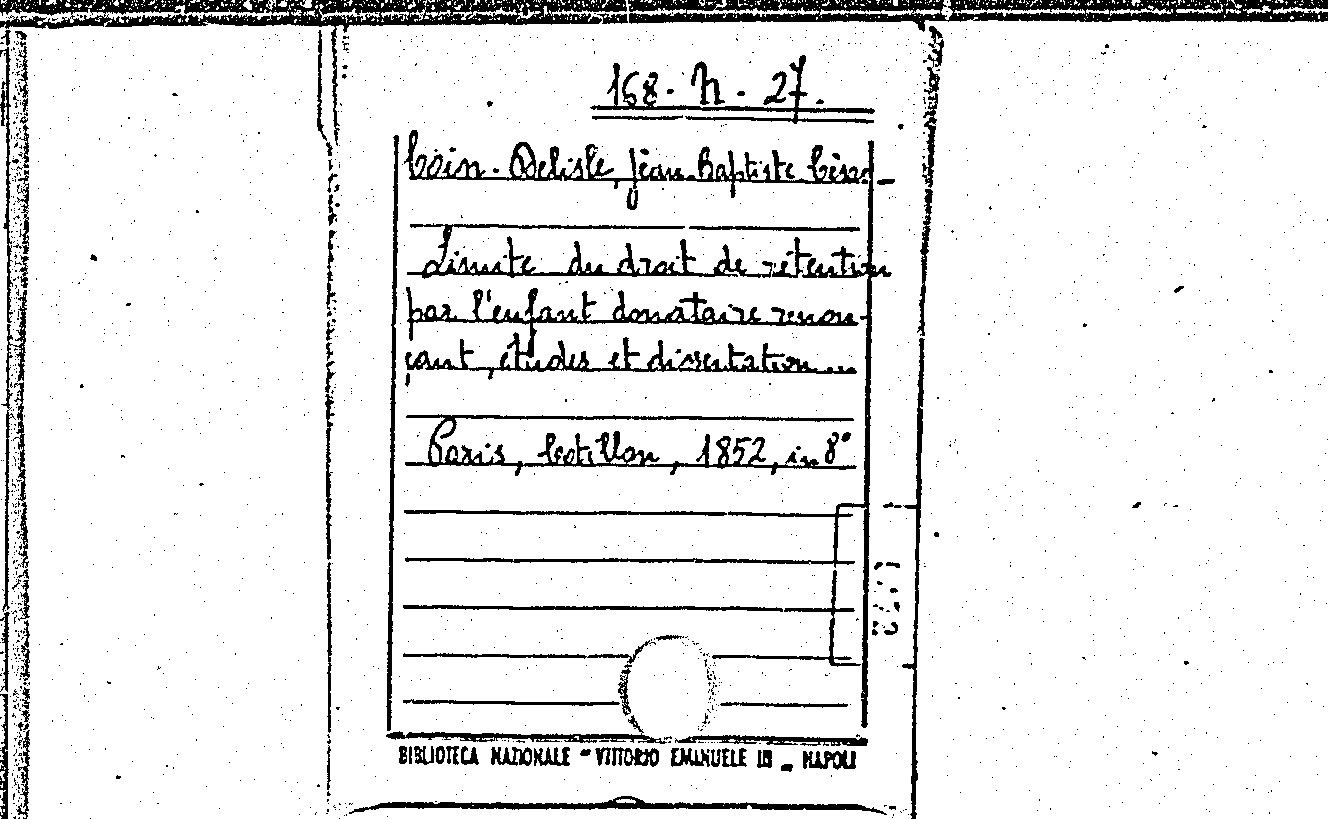 168. N. 27.
Coin. Delisle, Jean-Baptiste César
Limite du droit de rétention
par l'enfant donataire renon-
çant, études et dissertation...
Paris, Cotillon, 1852, in 8°
BIBLIOTECA NAZIONALE - VITTORIO EMANUELE III - NAPOLI